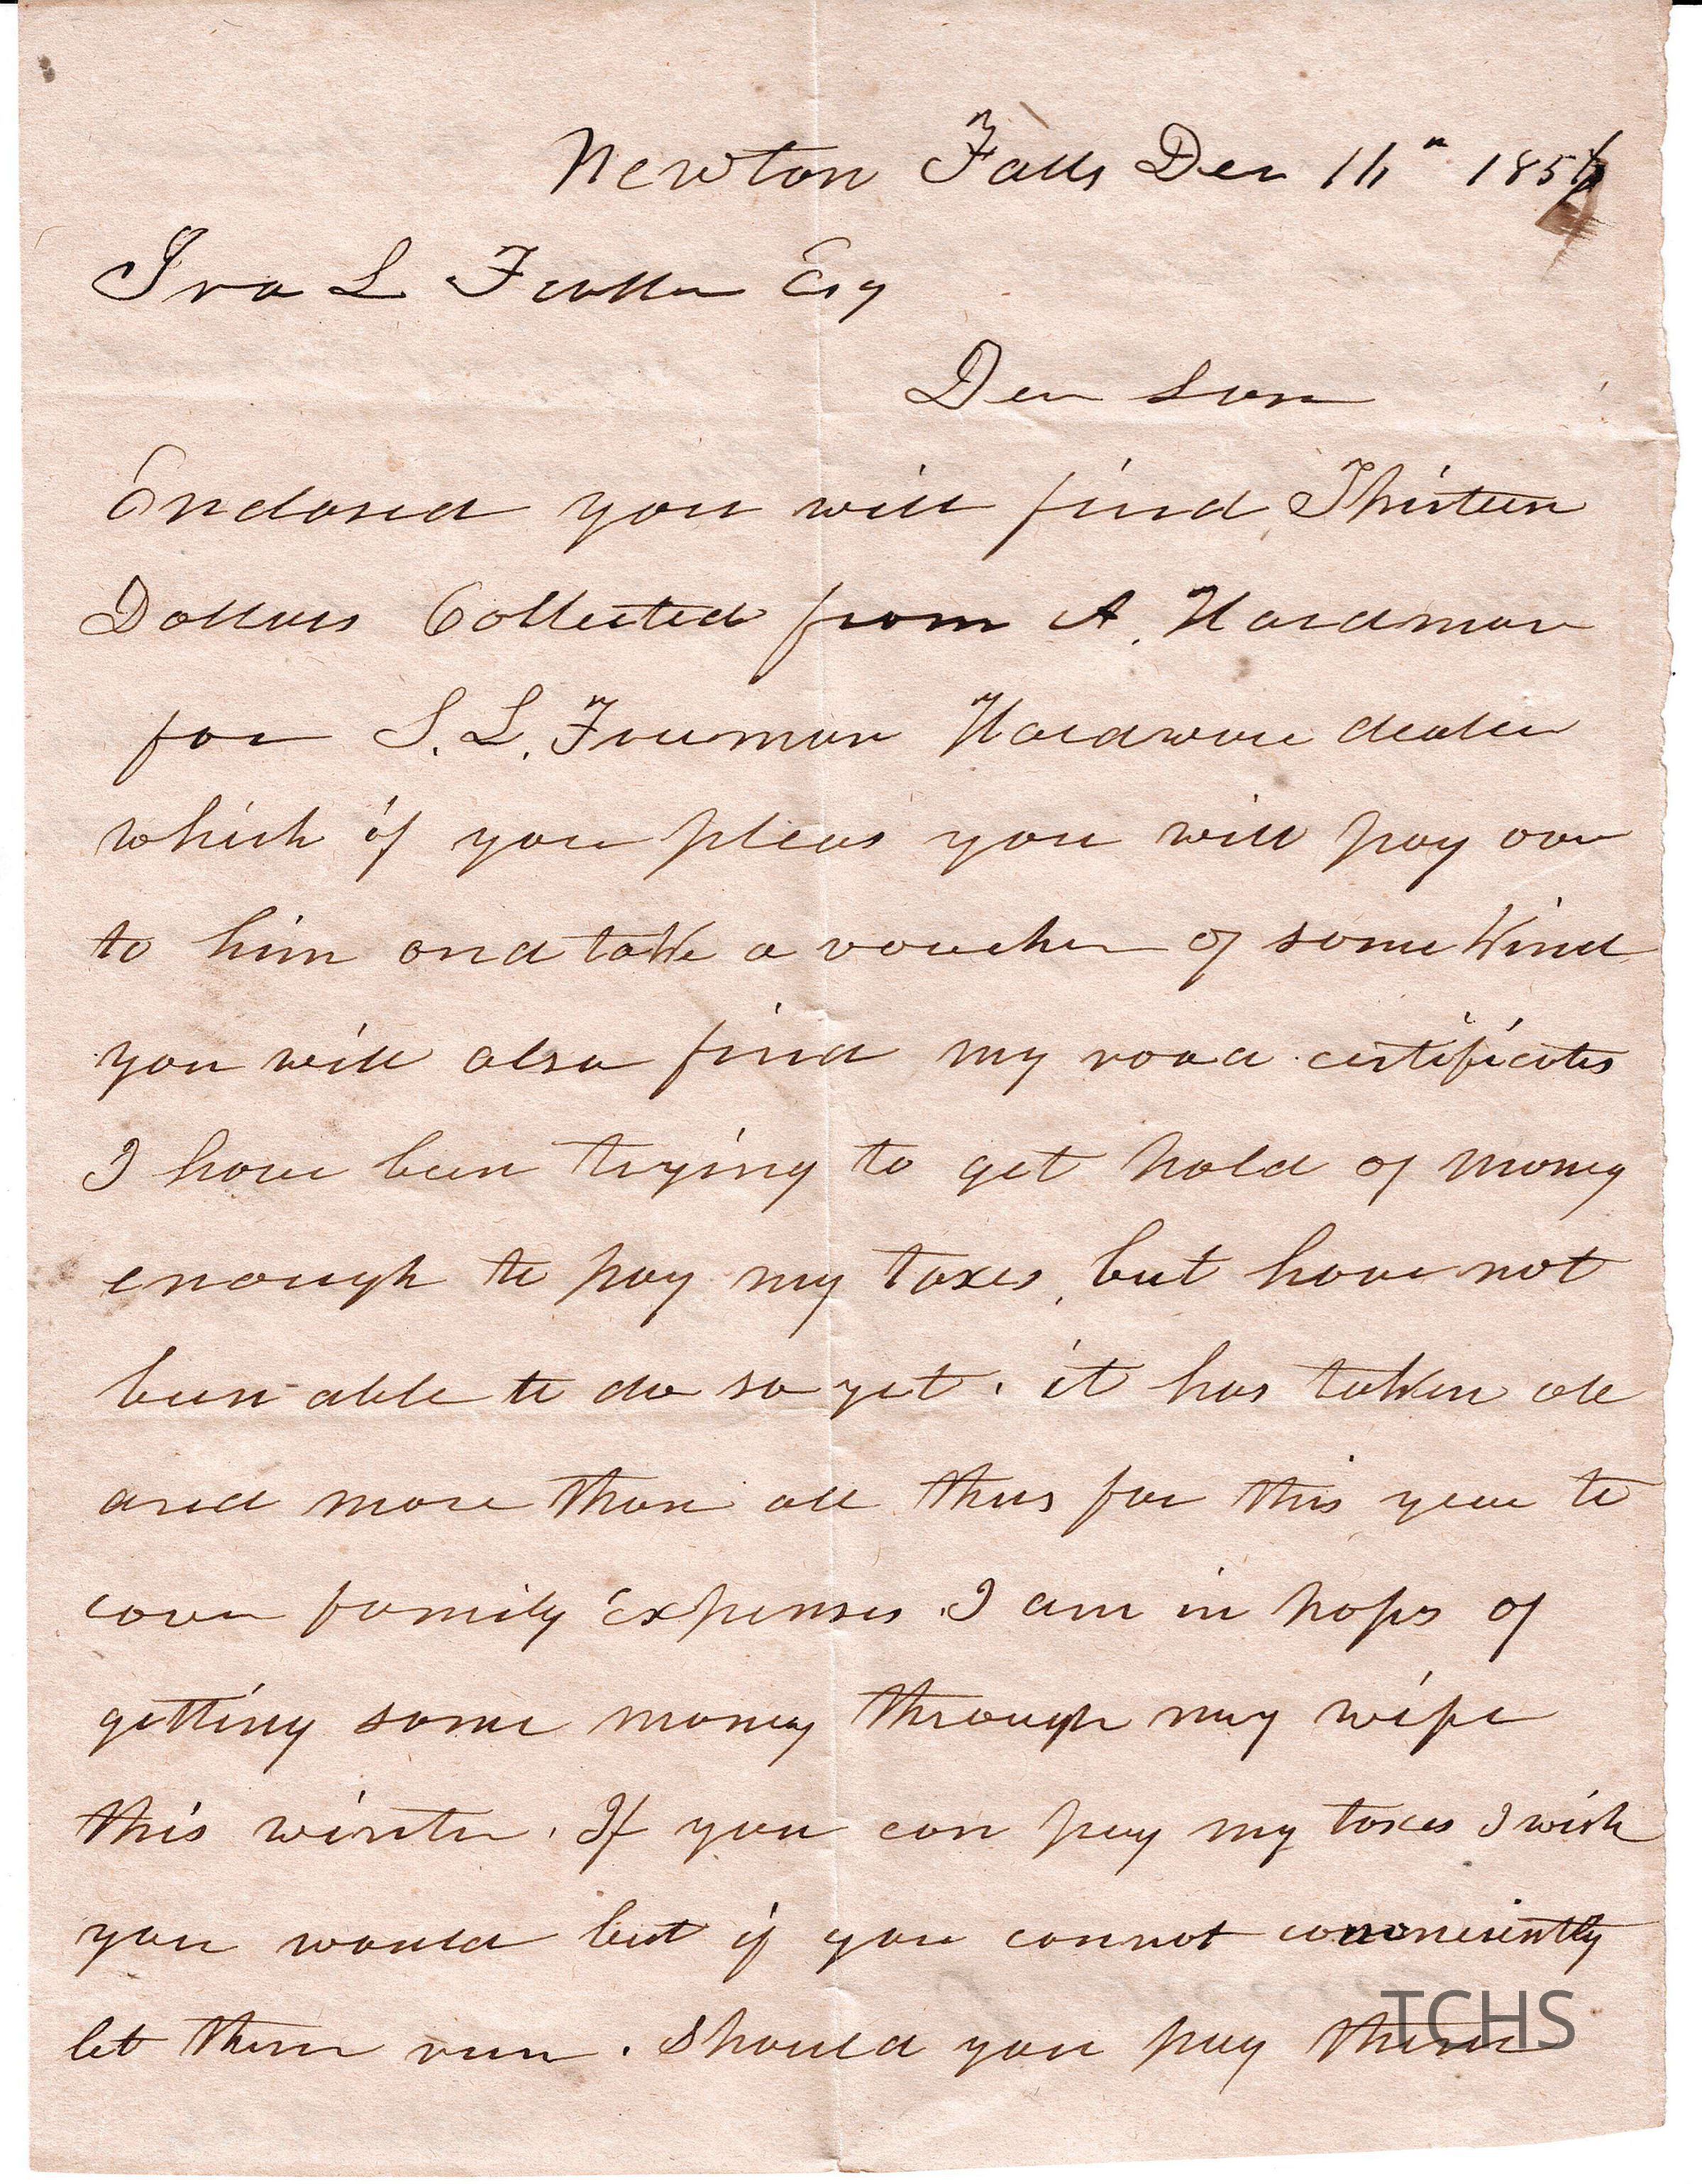 Newton Falls Dec 11" 185
Ira L Fuller Esq
Dear Son
Enclosed you will find Thirteen
Dollars Collected from A. Hardman
for S. L. Freeman Hardware dealer
which if you pleas you will pay over
to him and take a voucher of some kind
you will also find my road certificates
I have been trying to get hold of money
enough to pay my taxes, but have not
been able to do so yet. it has taken all
and more than all thus far this year to
cover family Expenses. I am in hopes of
getting some money through my wife
this winter. If you can pay my taxes I wish
you would but if you cannot conveniently
let them run. Should you pay them
TCHS